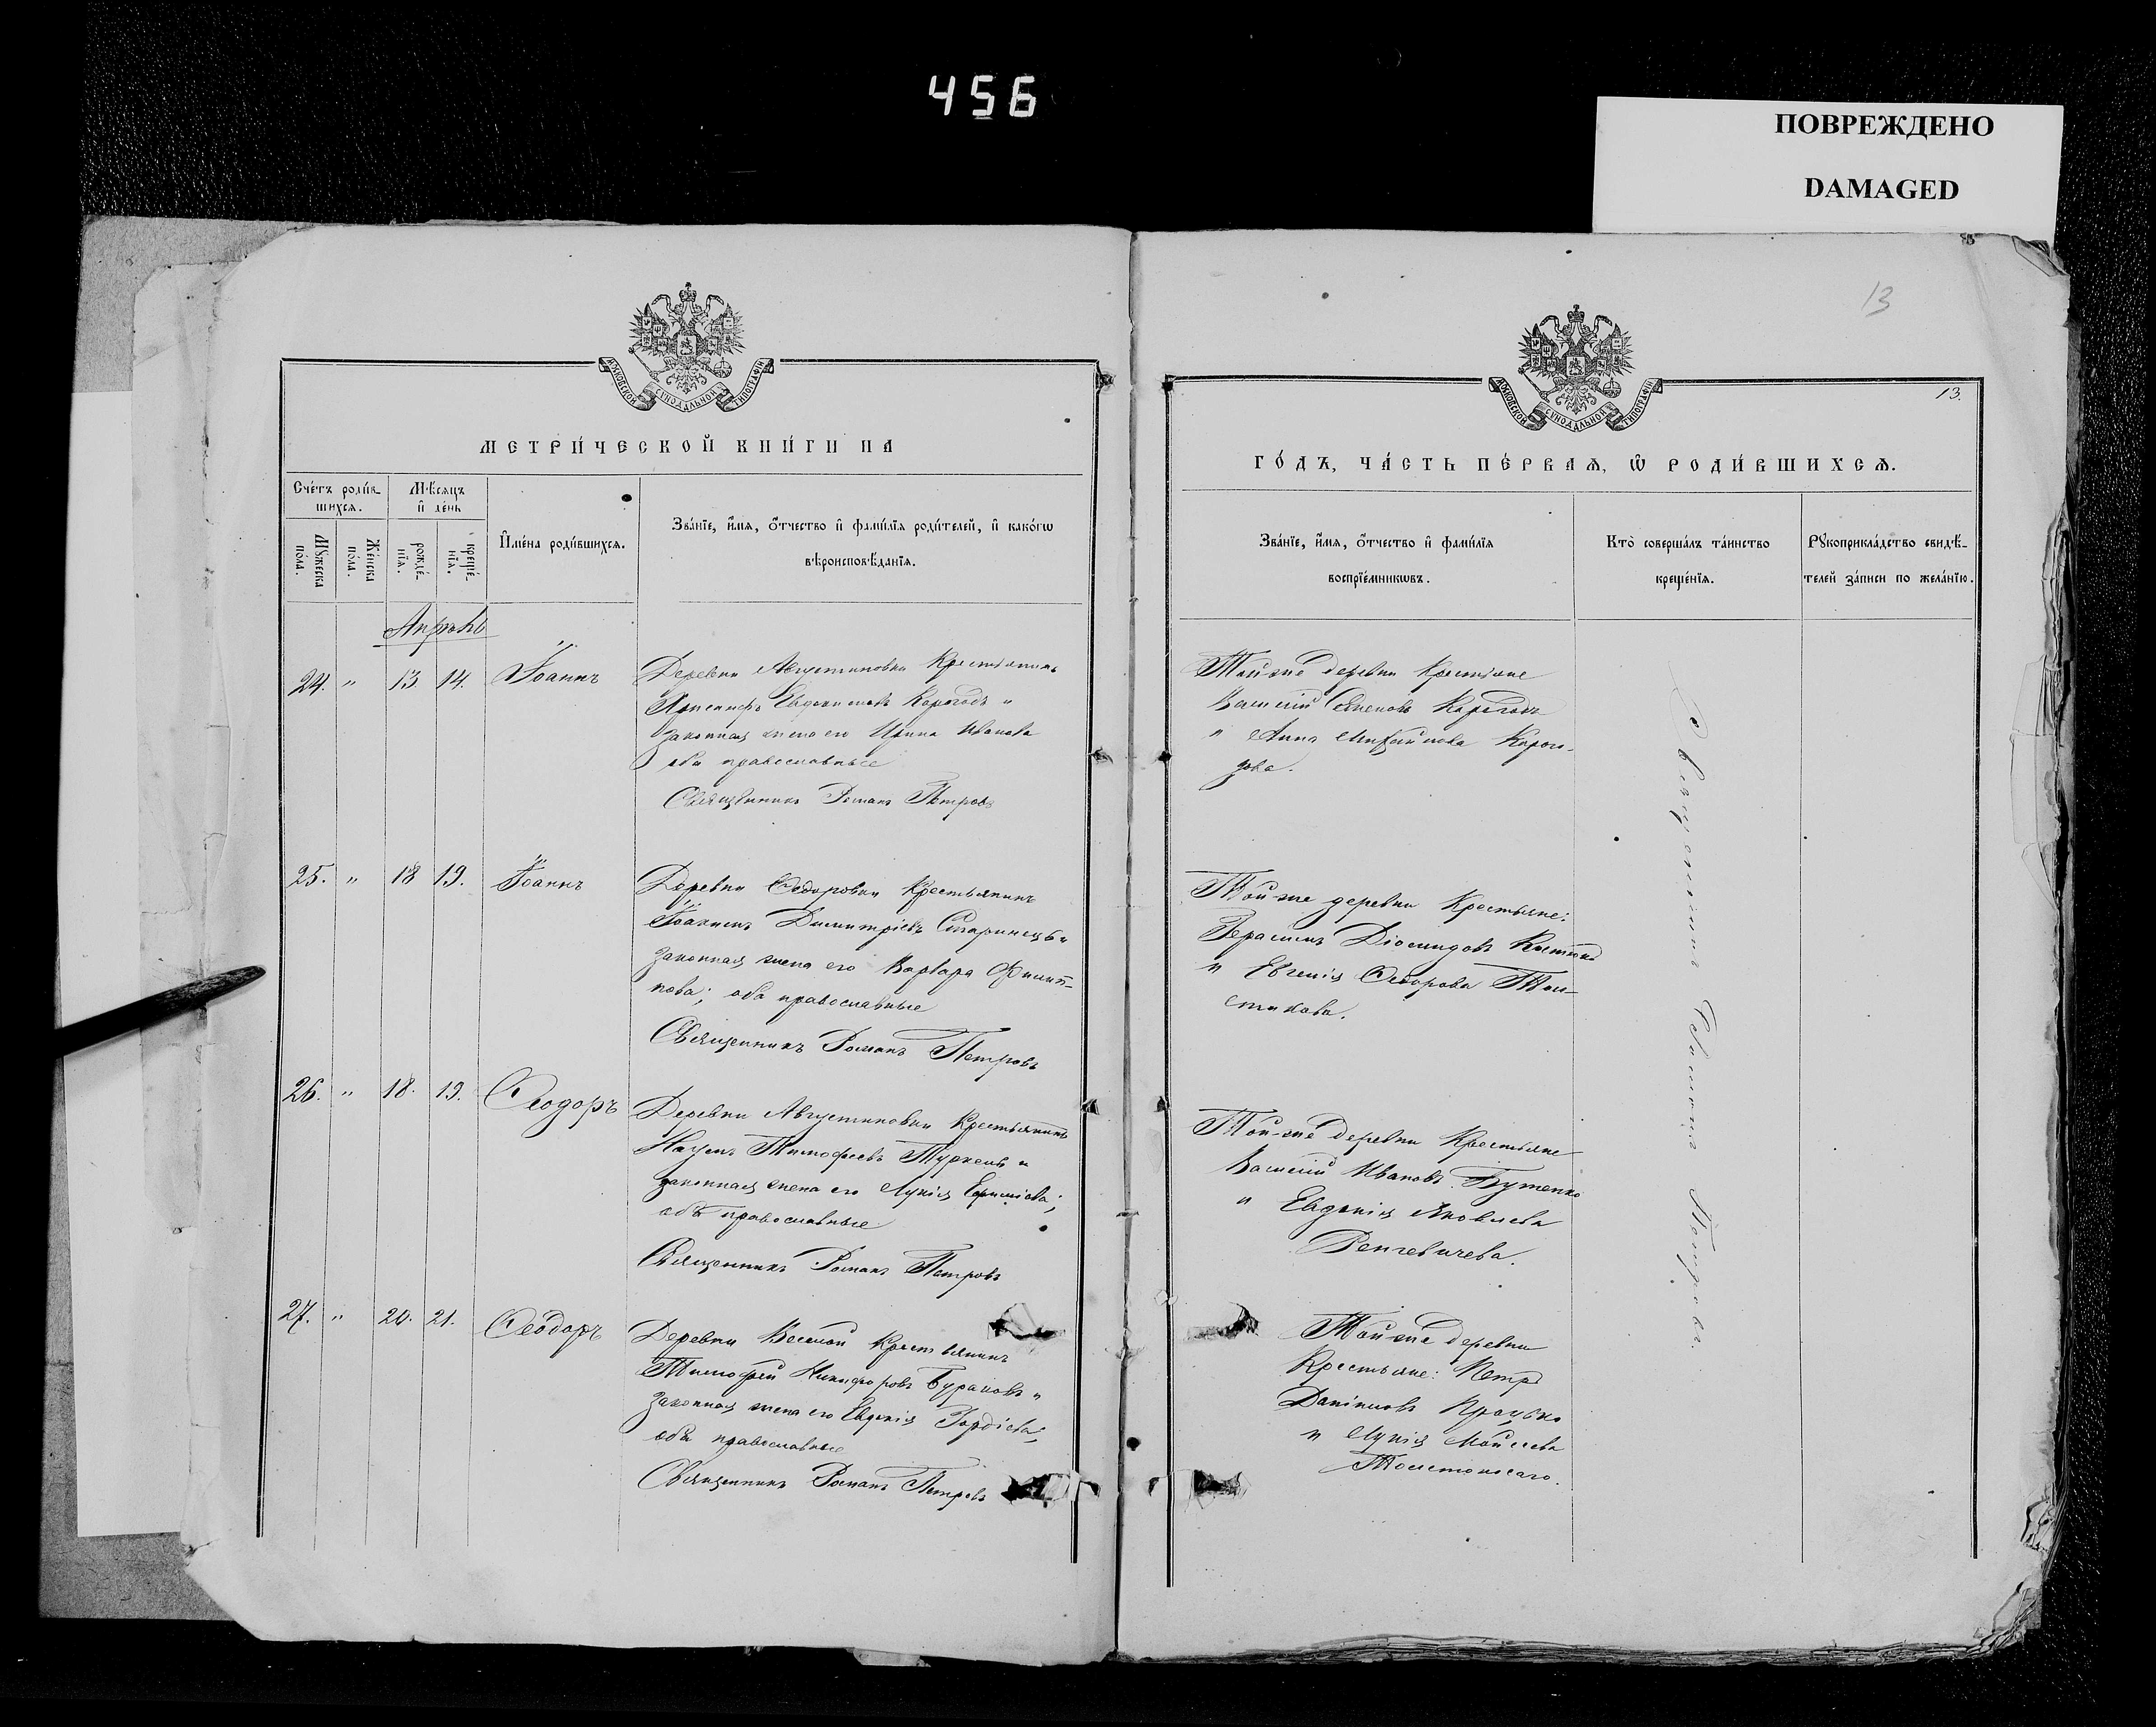 456
ПОВРЕЖДЕНО
DAMAGED
13
МОСКОВСКОЙ СУНОДАЛЬНОЙ ТИПОГРАФІИ
МЕТРИ́ЧЕСКОЙ КНИ́ГИ НА
Сче́тъ роди́в-
шихсѧ.
Мꙋ́жеска
по́ла.
Же́нска
по́ла.
Мѣ́сѧцъ
и҆ де́нь
рожде́-
нїѧ.
креще́-
нїѧ.
И҆мена̀ роди́вшихсѧ.
Зва́нїе, и҆́мѧ, ѻ҆́тчество и҆ фамі́лїѧ роди́телей, и҆ како́гѡ
вѣроисповѣ́данїѧ.
Апрѣль
24. " 13 14. Іоаннъ
Деревни Августиновки Крестьянинъ
Евдокимовъ Корогодъ и
законная жена его Ирина Иванова
оба православные
Священникъ Романъ Петровъ
25. " 18 19. Іоаннъ
Деревни Ѳедоровки Крестьянинъ
Іоакимъ Димитріевъ Старинецъ и
законная жена его Варвара Филип-
пова; оба православные
Священникъ Романъ Петровъ
26. " 18. 19. Ѳеодоръ
Деревни Августиновки Крестьянинъ
Наумъ Тимофеевъ и
законная жена его Лукія
оба православные
Священникъ Романъ Петровъ
27. " 20. 21. Ѳеодоръ
Деревни Веселой Крестьянинъ
Тимофей Никифоровъ Бураковъ и
законная жена его Евдокія Гордіева;
оба православные
Священникъ Романъ Петровъ
МОСКОВСКОЙ СУНОДАЛЬНОЙ ТИПОГРАФІИ
13.
ГО́ДЪ, ЧА́СТЬ ПЕ́РВАѦ, Ѡ҆ РОДИ́ВШИХСѦ.
Зва́нїе, и҆́мѧ, ѻ҆́тчество и҆ фамі́лїѧ
воспрїе́мникѡвъ.
Кто̀ соверша́лъ та́инство
креще́нїѧ.
Рꙋкоприкла́дство свидѣ́-
телей за́писи по жела́нїю.
Той-же деревни Крестьяне
Василій Семеновъ Корогодъ
и Анна Михайлова Корого-
дова.
Той-же деревни Крестьяне:
Герасимъ Діомидовъ
и Евгенія Ѳедорова Тол-
стикова.
Той-же деревни Крестьяне
Василій Ивановъ Бутенко
и Евдокія Яковлева
Той-же деревни
Крестьяне: Петръ
Даниловъ Працько
и Лукія Моисеева
Священникъ Романъ Петровъ.